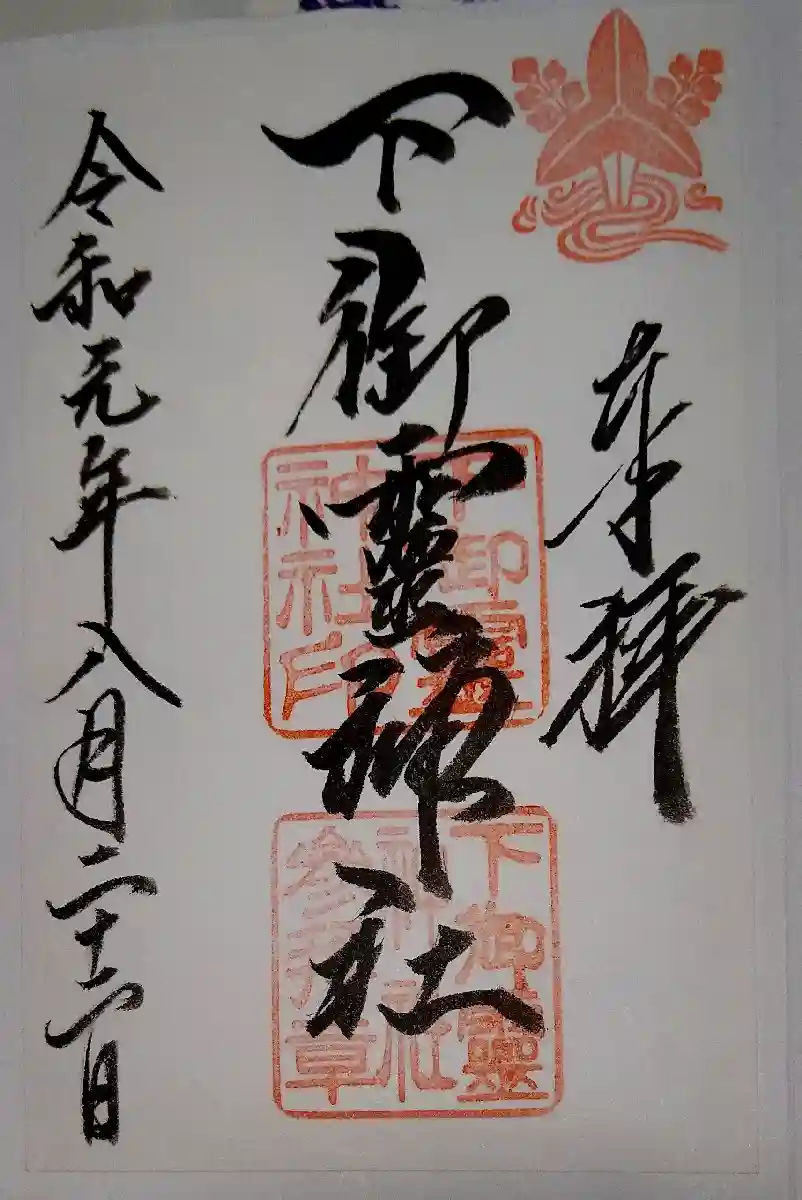 奉拝
下御靈神社
令和元年八月二十二日
下御靈
神社印
下御靈
神社
参拝章